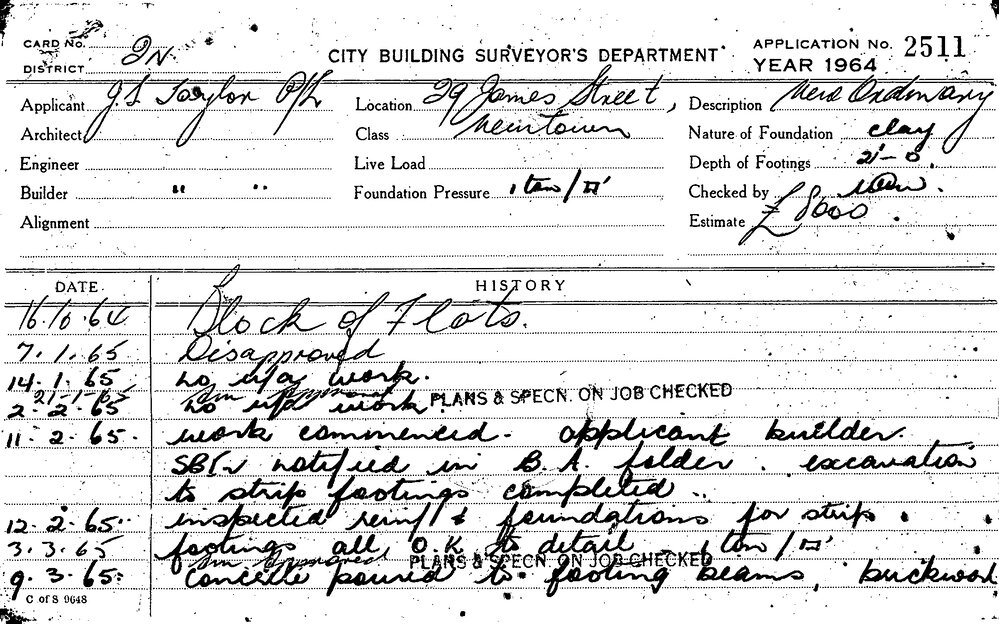 CARD No.
DISTRICT 2N
CITY BUILDING SURVEYOR'S DEPARTMENT
APPLICATION No. 2511
YEAR 1964
Applicant J.L Taylor P/L
Location 29 James Street,
Description New Ordinary
Architect
Class Newtown
Nature of Foundation clay
Engineer
Live Load
Depth of Footings 2'-0
Builder " "
Foundation Pressure 1 ton/□'
Checked by
Alignment
Estimate £8000
DATE HISTORY
16.10.64 Block of Flats.
7.1.65 Disapproved
14.1.65 no u/a work.
21-1-65 am Approved
2.2.65 no u/a work. PLANS & SPECN. ON JOB CHECKED
11.2.65. work commenced. applicant builder.
notified in B.A. folder. excavation
to strip footings completed.
12.2.65. inspected reinf't & foundations for strip
3.3.65 footings all O.K to detail 1 ton/□'
am Approved PLANS & SPECN. ON JOB CHECKED
9.3.65. concrete poured to footing beams, brickwork
C of S 9648